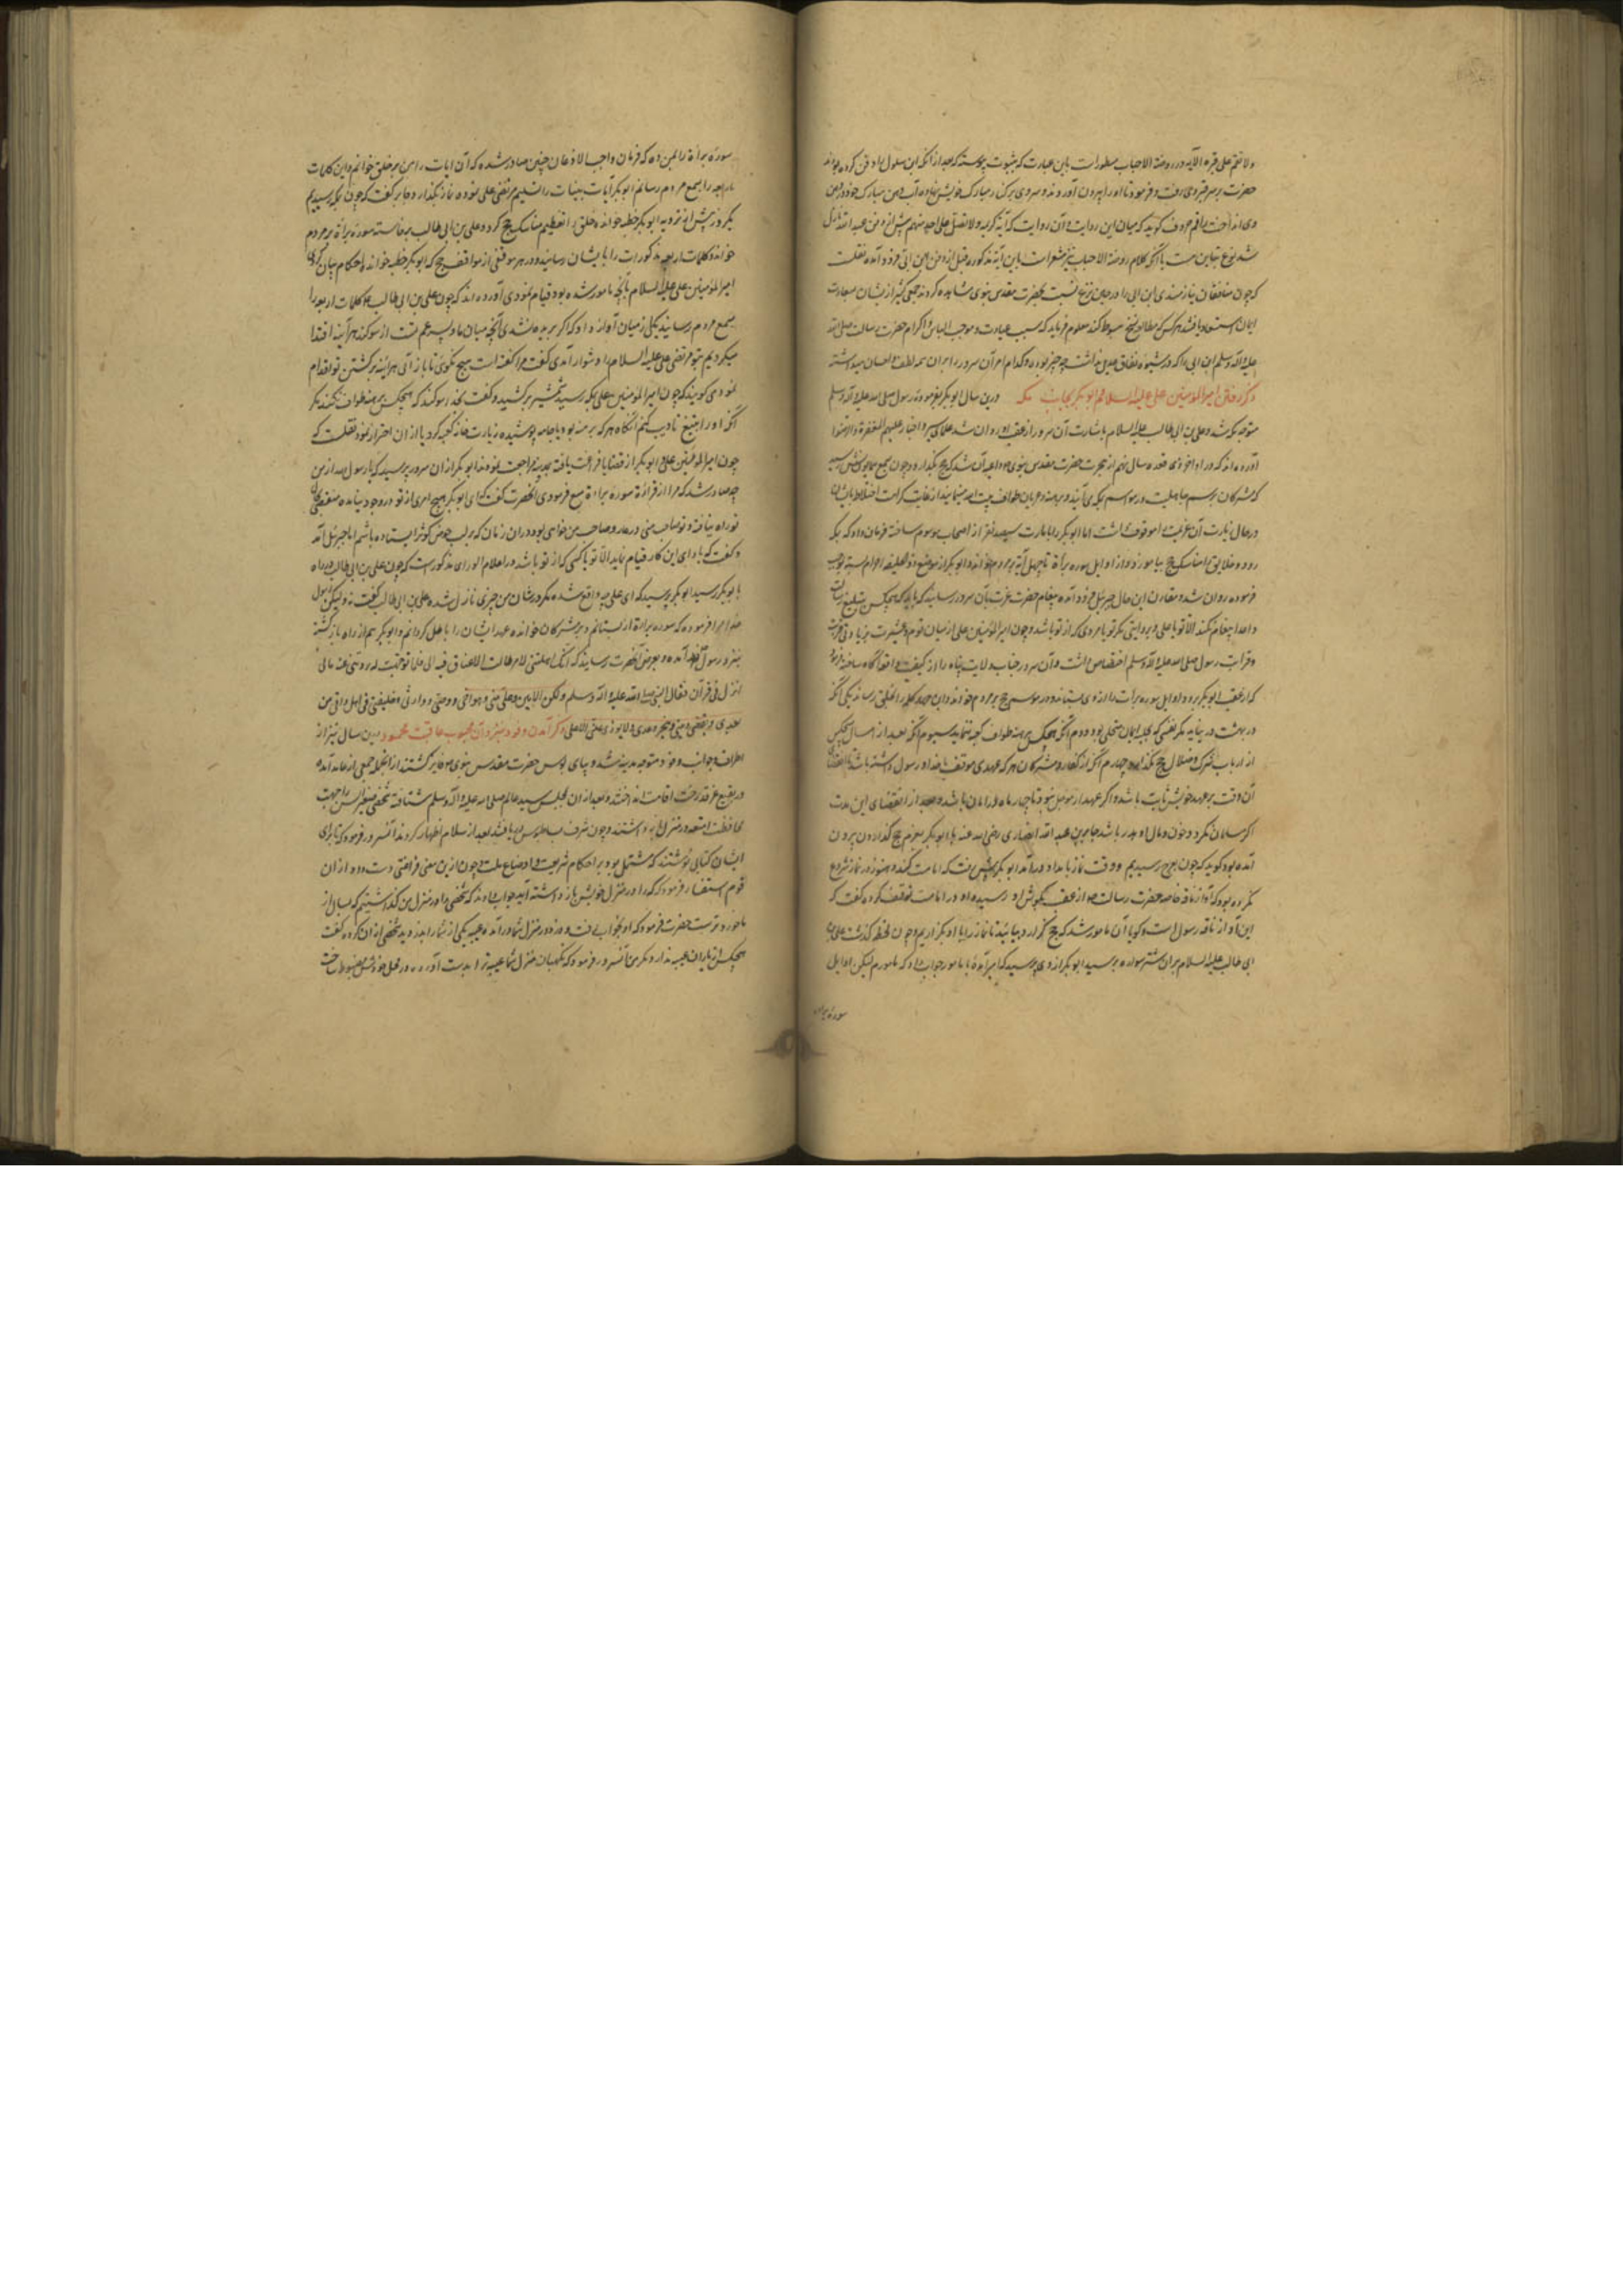 ولا تقم علی قبره الآیه و در روضة الاحباب مسطورست باین عبارت که بثبوت پیوسته که بعد از آنکه ابن سلول را دفن کرده بودند
حضرت بر سر قبر وی رفت و فرمود تا او را بیرون آوردند و سر وی بر کنار مبارک خویش نهاده آب دهن مبارک خود در دهن
وی انداخت راقم حروف گوید که میان این روایت و آن روایت که آیه کریمه ولا تصل علی احد منهم پیش از دفن عبد الله نازل
شد نوع تباین هست با آنکه کلام روضة الاحباب نیز مشعرست باین آیه مذکوره قبل از دفن ابن ابی فرود آمده نقلست
که چون منافقان نیازمندی ابن ابی را در حین نزع نسبت بحضرت مقدس نبوی مشاهده کردند جمعی کثیر از یشان بسعادت
ایمان استسعاد یافتند هرکس که مطالعه نسخ مبسوط کند معلوم فرماید که سبب عیادت و موجب الباس و اکرام حضرت رسالت صلی الله
علیه و آله و سلم ابن ابی را که در شیوه نفاق عدیل نداشت چه چیز بوده و کدام امر آن سرور را بر آن همه لطف و احسان میداشته
ذکر رفتن امیر المؤمنین علی علیه السلام و ابو بکر بجانب مکه درین سال ابو بکر بفرموده رسول صلی الله علیه و آله و سلم
متوجه مکه شد و علی بن ابی طالب علیه السلام باشارت آن سرور از عقب او روان شد علمای سیر و اخبار علیهم المغفرة و الرضوان
آورده اند که در اواخر ذی قعده سال نهم از هجرت حضرت مقدس نبوی را داعیه آن شد که حج بگذارد و چون بسمع همایونش رسید
که مشرکان برسم جاهلیت در موسم بمکه می آیند و برهنه و عریان طواف بیت الله مینمایند از غایت کراهت اختلاط با یشان
در حال زیارت آن عزیمت را موقوف داشت اما ابو بکر را بامارت سیصد نفر از اصحاب موسوم ساخته فرمان داد که بمکه
رود و خلایق را مناسک حج بیاموزد و از اوایل سوره برأة تا چهل آیه بر مردم خواند و ابو بکر از موضع ذو الحلیفه احرام بسته بموجب
فرموده روان شد و مقارن این حال جبرئیل فرود آمده پیغام حضرت عزت بآن سرور رسانید که باید که هیچکس تبلیغ رسالت
و ادای پیغام نکند الا تو یا علی و بروایتی مگر تو یا مردی که از تو باشد و چون امیر المؤمنین علی از میان قوم و عشیرت بزیادتی قربت
و قرابت رسول صلی الله علیه و آله و سلم اختصاص داشت آن سرور جناب ولایت پناه را از کیفیت واقعه آگاه ساخته فرمود
که از عقب ابو بکر برود و اوایل سوره برأت را از وی بستاند و در موسم حج بر مردم خواند و این چهار کلمه را بخلق رساند یکی آنکه
در بهشت در نیاید مگر نفسی که بحلیه ایمان متحلی بود دوم آنکه هیچکس برهنه طواف کعبه ننماید سیوم آنکه بعد از امسال هیچکس
از ارباب شرک و ضلال حج نگذارد چهارم آنکه از کفار و مشرکان هر که عهدی موقت بخدا و رسول داشته باشد تا انقضای
آن وقت بر عهد خویش ثابت باشد و اگر عهد او موجل نبود تا چهار ماه در امان باشد و بعد از انقضای این مدت
اگر مسلمان نگردد خون و مال او هدر باشد جابر بن عبد الله انصاری رضی الله عنه با ابو بکر بعزم حج گذاردن بیرون
آمده بود گوید که چون بعرج رسیدیم و وقت نماز بامداد در آمد ابو بکر پیش رفت که امامت کند و هنوز در نماز شروع
نکرده بود که آواز ناقه خاصه حضرت رسالت از عقب بگوش او رسیده او در امامت توقف کرده گفت که
این آواز ناقه رسول است و گویا آن مامور شد که حج گزارد بپائید تا نماز را با او بگزاریم و چون لحظه گذشت علی بن
ابی طالب علیه السلام بران شتر سوار برسید ابو بکر از وی پرسید که امیر آمده یا مامور جواب داد که مامورم لیکن اوایل
سوره براءة
سوره برأة را بمن ده که فرمان واجب الاذعان چنین صادر شده که آن آیات را من بر خلق خوانم و این کلمات
اربعه را بسمع مردم رسانم ابو بکر آیات بینات را تسلیم مرتضی علی نموده نماز بگذارد و جابر گفت که چون بمکه رسیدیم
یکروز پیش از ترویه ابو بکر خطبه خوانده خلق را تعظیم مناسک حج کرد و علی بن ابی طالب برخاسته سوره برأة بر مردم
خواند و کلمات اربعه مذکورات را بایشان رسانید و در هر موقفی از مواقف حج که ابو بکر خطبه خوانده احکام بیان کردی
امیر المؤمنین علی علیه السلام بآنچه مامور شده بود قیام نمودی آورده اند که چون علی بن ابی طالب کلمات اربعه را
بسمع مردم رسانید یکی از میان آواز داد که اگر بریده نشدی آنچه میان ما و پسر عم تست از سوگند هر آینه ابتدا
میکردیم بتو مرتضی علی علیه السلام را دشوار آمدی گفت مرا گفته است هیچ نگوی تا باز آئی هر آینه بر کشتن تو اقدام
نمودمی گویند که چون امیر المؤمنین علی بمکه رسید شمشیر برکشید و گفت بخدا سوگند که هیچکس برهنه طواف نکند مگر
آنکه او را بتیغ تادیب کنم آنگاه هر که برهنه بود یا جامه پوشیده زیارت خانه کعبه کرد یا از ان احتراز نمود نقلست که
چون امیر المؤمنین علی و ابو بکر از قضایا فراغت یافته بمدینه مراجعت نمودند ابو بکر از ان سرور پرسید که یا رسول الله از من
چه صادر شد که مرا از قرائة سوره براءة منع فرمودی آنحضرت گفت که ای ابو بکر هیچ امری از تو در وجود نیامده منقصتی
بتو راه نیافته و تو صاحب منی در غار و صاحب من خواهی بود در ان زمان که بر لب حوض کوثر ایستاده باشم اما جبرئیل آمد
و گفت که بادای این کار قیام نماید الا تو یا کسی که از تو باشد در اعلام الوری مذکورست که چون علی بن ابی طالب در راه
با بو بکر رسید ابو بکر پرسید که ای علی چه واقع شده مگر در شان من چیزی نازل شده علی بن ابی طالب گفت نه ولیکن رسول
خدا مرا فرموده که سوره براءة از تو بستانم و بر مشرکان خوانده عهد ایشان را باطل گردانم و ابو بکر هم از راه بازگشته
بنزد رسول خدا آمده و بعرض آنحضرت رسانید که انک اهلتنی لامر طالت الاعناق فیه الی فلما توجهت له رددتنی عنه مالی
انزل فی قرآن فقال النبی صلی الله علیه و آله و سلم ولکن الامین و علی منی و هو اخی و وصیی و وارثی و خلیفتی فی اهلی و امتی من
بعدی و یقضی دینی و ینجز وعدی ولا یودی عنی الا علی ذکر آمدن وفود بنزد آن محبوب عاقبت محمود درین سال نیز از
اطراف و جوانب وفود متوجه مدینه شد و بپای بوس حضرت مقدس نبوی فایز گشتند از آنجمله جمعی از غامد آمده
در بقیع غرقد رخت اقامت انداختند و بعد از ان بمجلس سید عالم صلی الله علیه و آله و سلم شتافته شخصی صغیر السن را جهت
محافظت امتعه در منزل باز داشتند و چون شرف بساط بوس دریافتند بعد از سلام اظهار کردند آنسرور فرمود که تا برای
ایشان کتابی نوشتند که مشتمل بود بر احکام شریعت و اوضاع ملت و چون ازین معنی فراغتی دست داد از ان
قوم استفسار فرمود که کرا در منزل خویش باز داشته آمدید جواب دادند که شخصی را در منزل من گذاشتیم که بسال از
ما خورد ترست حضرت فرمود که او بخواب رفت و دزد در منزل شما در آمده عیبه یکی از شما را بدزدید شخصی از ان گروه گفت
هیچکس از یاران عیبه ندارد مگر من آنسرور فرمود که نگهبان منزل شما عیبه ترا بدست آورده در محل خودش مضبوط ساخت